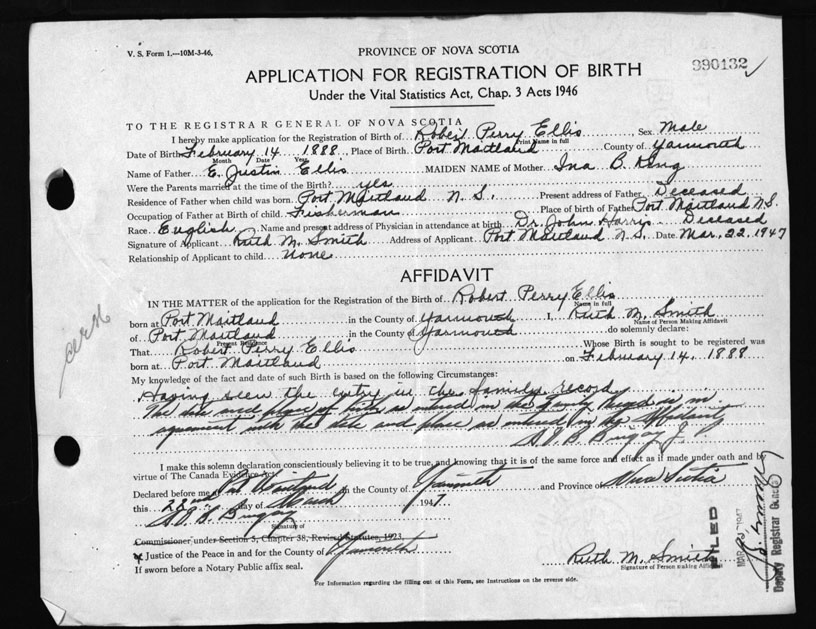 V. S. Form 1.—10M-3-46.
PROVINCE OF NOVA SCOTIA
990132
APPLICATION FOR REGISTRATION OF BIRTH
Under the Vital Statistics Act, Chap. 3 Acts 1946
TO THE REGISTRAR GENERAL OF NOVA SCOTIA
I hereby make application for the Registration of Birth of Robert Perry Ellis Sex Male
Print Name in full
Date of Birth February 14 1888 Place of Birth Port Maitland County of Yarmouth
Month Date Year
Name of Father E. Justin Ellis MAIDEN NAME of Mother Ina B. King
Were the Parents married at the time of the Birth? yes
Residence of Father when child was born Port Maitland N. S. Present address of Father Deceased
Occupation of Father at Birth of child Fisherman Place of birth of Father Port Maitland N.S.
Race English Name and present address of Physician in attendance at birth Dr. John Harris Deceased
Signature of Applicant Ruth M. Smith Address of Applicant Port Maitland N. S. Date Mar. 22. 1947
Relationship of Applicant to child none
AFFIDAVIT
IN THE MATTER of the application for the Registration of the Birth of Robert Perry Ellis
Name in full
born at Port Maitland in the County of Yarmouth I, Ruth M. Smith
Name of Person Making Affidavit
of Port Maitland in the County of Yarmouth do solemnly declare:
Present Residence
That Robert Perry Ellis Whose Birth is sought to be registered was
born at Port Maitland on February 14. 1888
My knowledge of the fact and date of such Birth is based on the following Circumstances:
Having seen the entry in the family record
The date and place of birth as entered in the Family Record is in
agreement with the date and place as entered in the
I make this solemn declaration conscientiously believing it to be true, and knowing that it is of the same force and effect as if made under oath and by
virtue of The Canada Evidence Act.
Declared before me at Port Maitland in the County of Yarmouth and Province of Nova Scotia
this 22nd day of March 1947
Signature of
Commissioner, under Section 5, Chapter 38, Revised Statutes, 1923,
Justice of the Peace in and for the County of Yarmouth
If sworn before a Notary Public affix seal.
Ruth M. Smith
Signature of Person making Affidavit
For Information regarding the filling out of this Form, see Instructions on the reverse side.
FILED
Deputy Registrar General